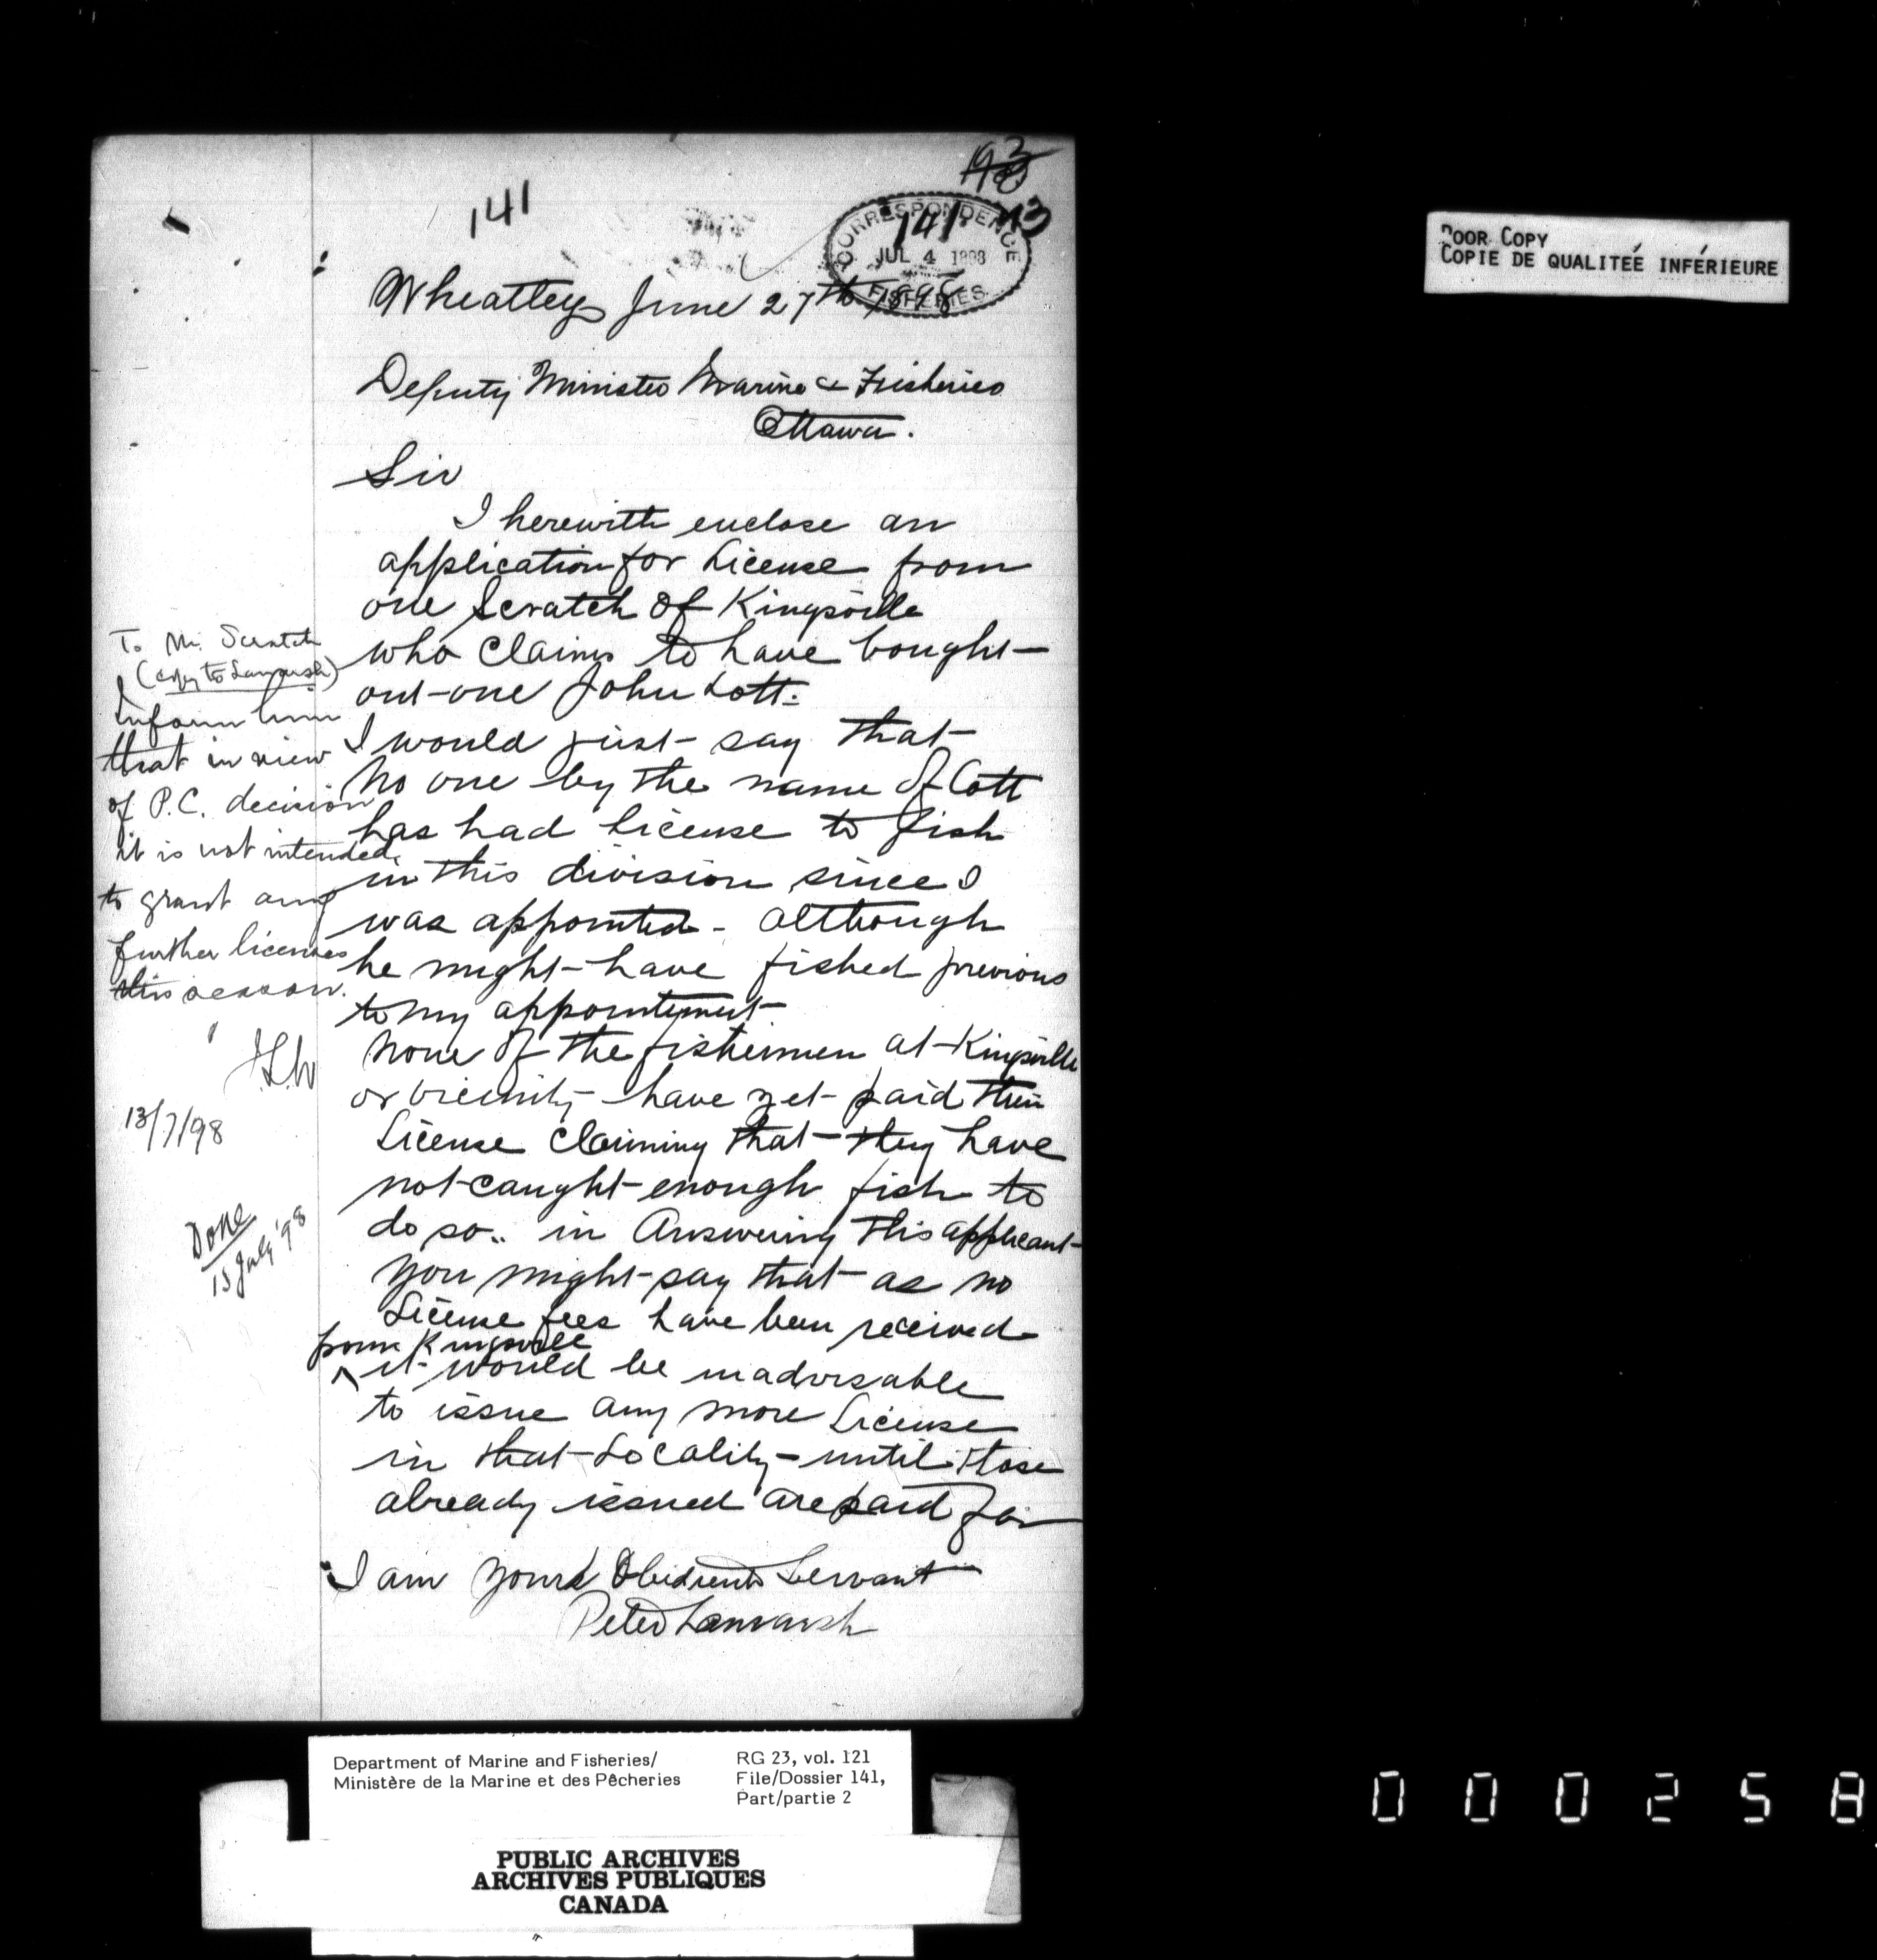 193
141
CORRESPONDENCE
141 13
JUL 4 1898
FISHERIES
Wheatley June 27th 1898
Deputy Minister Marine & Fisheries
Ottawa.
Sir
I herewith enclose an
application for License from
one Scratch of Kingsville
who claims to have bought
out one John Lott.
I would just say that
no one by the name of Cott
has had license to fish
in this division since I
was appointed - although
he might have fished previous
to my appointment
None of the fishermen at Kingsville
or vicinity have yet paid their
License claiming that they have
not caught enough fish to
do so.. in Answering this applicant
you might say that as no
License fees have been received
from Kingsville
^ it would be inadvisable
to issue any more License
in that Locality - until those
already issued are paid for
I am Yours Obedient Servant
Peter Lamarsh
To Mr. Scratch
(copy to Lamarsh)
Inform him
that in view
of P.C. decision
it is not intended
to grant any
further licenses
this season.
13/7/98
Done
15 July '98
POOR COPY
COPIE DE QUALITEÉ INFÉRIEURE
Department of Marine and Fisheries/
Ministère de la Marine et des Pêcheries
RG 23, vol. 121
File/Dossier 141,
Part/partie 2
PUBLIC ARCHIVES
ARCHIVES PUBLIQUES
CANADA
000258